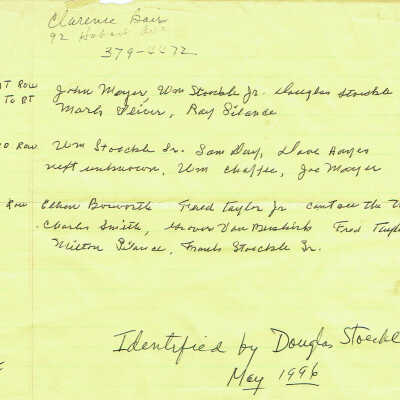 Clarence Bair
92 Hobart Ave
379-4472
T Row John Mayer, Wm Stoeckle Jr. Douglas Stoeckle
TO RT Mark Feiver, Ray Silance
D Row Wm Stoeckle Sr. Sam Day, Dave Hayes
next unknown, Wm Chaffee, Joe Mayer
Row Elken Bosworth Fred Taylor Jr cant see the
Charles Smith, Grover Van Buskirk Fred
Milton Silance, Frank Stoeckle Sr.
Identified by Douglas Stoeckl
May 1996